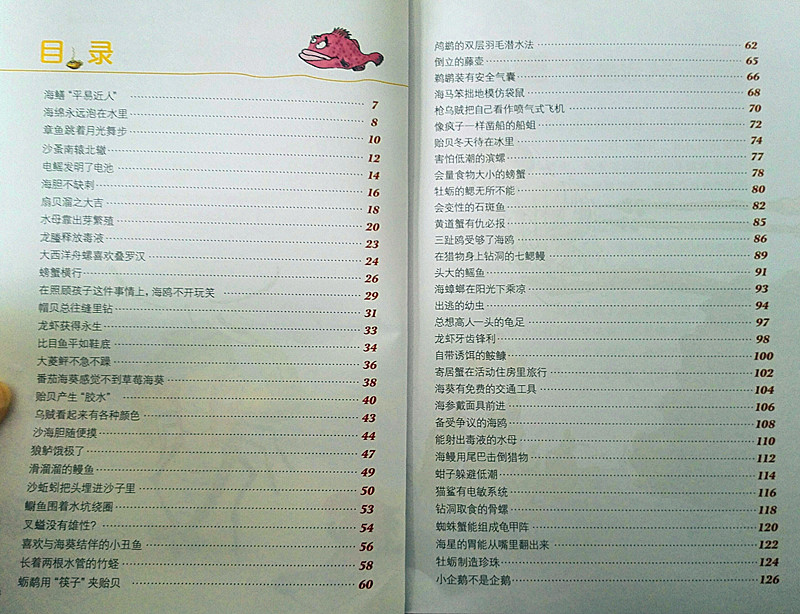 目录
海鳝“平易近人” 7
海绵永远泡在水里 8
章鱼跳着月光舞步 10
沙蚤南辕北辙 12
电鳐发明了电池 14
海胆不缺刺 16
扇贝溜之大吉 18
水母靠出芽繁殖 20
龙䲢释放毒液 23
大西洋舟螺喜欢叠罗汉 24
螃蟹横行 26
在照顾孩子这件事情上，海鸥不开玩笑 29
帽贝总往缝里钻 31
龙虾获得永生 33
比目鱼平如鞋底 34
大菱鲆不急不躁 36
番茄海葵感觉不到草莓海葵 38
贻贝产生“胶水” 40
乌贼看起来有各种颜色 43
沙海胆随便摸 44
狼鲈饿极了 47
滑溜溜的鳗鱼 49
沙蚯蚓把头埋进沙子里 50
鳚鱼围着水坑绕圈 53
叉螠没有雄性？ 54
喜欢与海葵结伴的小丑鱼 56
长着两根水管的竹蛏 58
蛎鹬用“筷子”夹贻贝 60
鸬鹚的双层羽毛潜水法 62
倒立的藤壶 65
鹈鹕装有安全气囊 66
海马笨拙地模仿袋鼠 68
枪乌贼把自己看作喷气式飞机 70
像疯子一样凿船的船蛆 72
贻贝冬天待在冰里 74
害怕低潮的滨螺 77
会量食物大小的螃蟹 78
牡蛎的鳃无所不能 80
会变性的石斑鱼 82
黄道蟹有仇必报 85
三趾鸥受够了海鸥 86
在猎物身上钻洞的七鳃鳗 89
头大的鳐鱼 91
海蟑螂在阳光下乘凉 93
出逃的幼虫 94
总想高人一头的龟足 97
龙虾牙齿锋利 98
自带诱饵的鮟鱇 100
寄居蟹在活动住房里旅行 102
海葵有免费的交通工具 104
海参戴面具前进 106
备受争议的海鸥 108
能射出毒液的水母 110
海鳗用尾巴击倒猎物 112
蚶子躲避低潮 114
猫鲨有电敏系统 116
钻洞取食的骨螺 118
蜘蛛蟹能组成龟甲阵 120
海星的胃能从嘴里翻出来 122
牡蛎制造珍珠 124
小企鹅不是企鹅 126